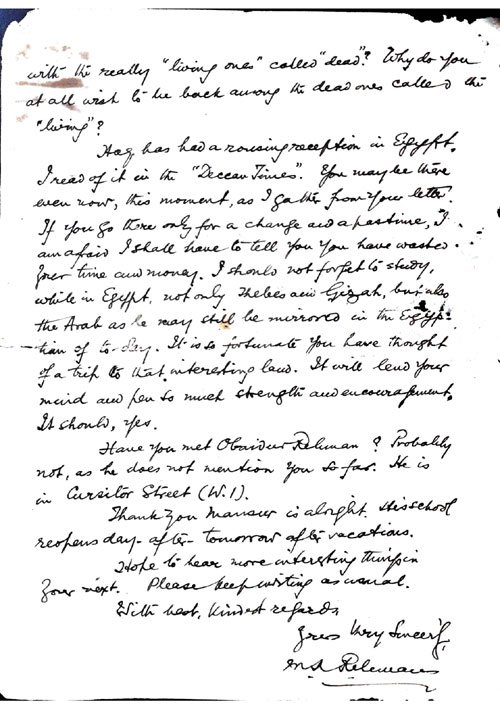 with the really "living ones" called "dead"? Why do you
at all wish to be back among the dead ones called the
"living"?
Haq has had a rousing reception in Egypt.
I read of it in the "Deccan Times". You may be there
even now, this moment, as I gather from your letter.
If you go there only for a change and a pastime, I
am afraid I shall have to tell you you have wasted
your time and money. I should not forget to study,
while in Egypt, not only Thebes and Gizah, but also
the Arab as he may still be mirrored in the Egyp-
tian of to-day. It is so fortunate you have thought
of a trip to that interesting land. It will lend your
mind and pen so much strength and encouragement.
It should, yes.
Have you met Obaidur Rehman? Probably
not, as he does not mention you so far. He is
in Cursitor Street (W.1).
Thank you Mansur is alright. His school
reopens day-after-tomorrow after vacations.
Hope to hear more interesting things in
your next. Please keep writing as usual.
With best, kindest regards
Yours Very Sincerely,
Rehman